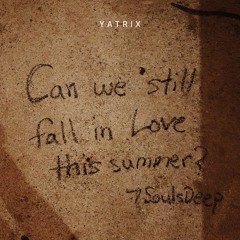 YATRIX
Can we still
fall in Love
this summer?
7SoulsDeep